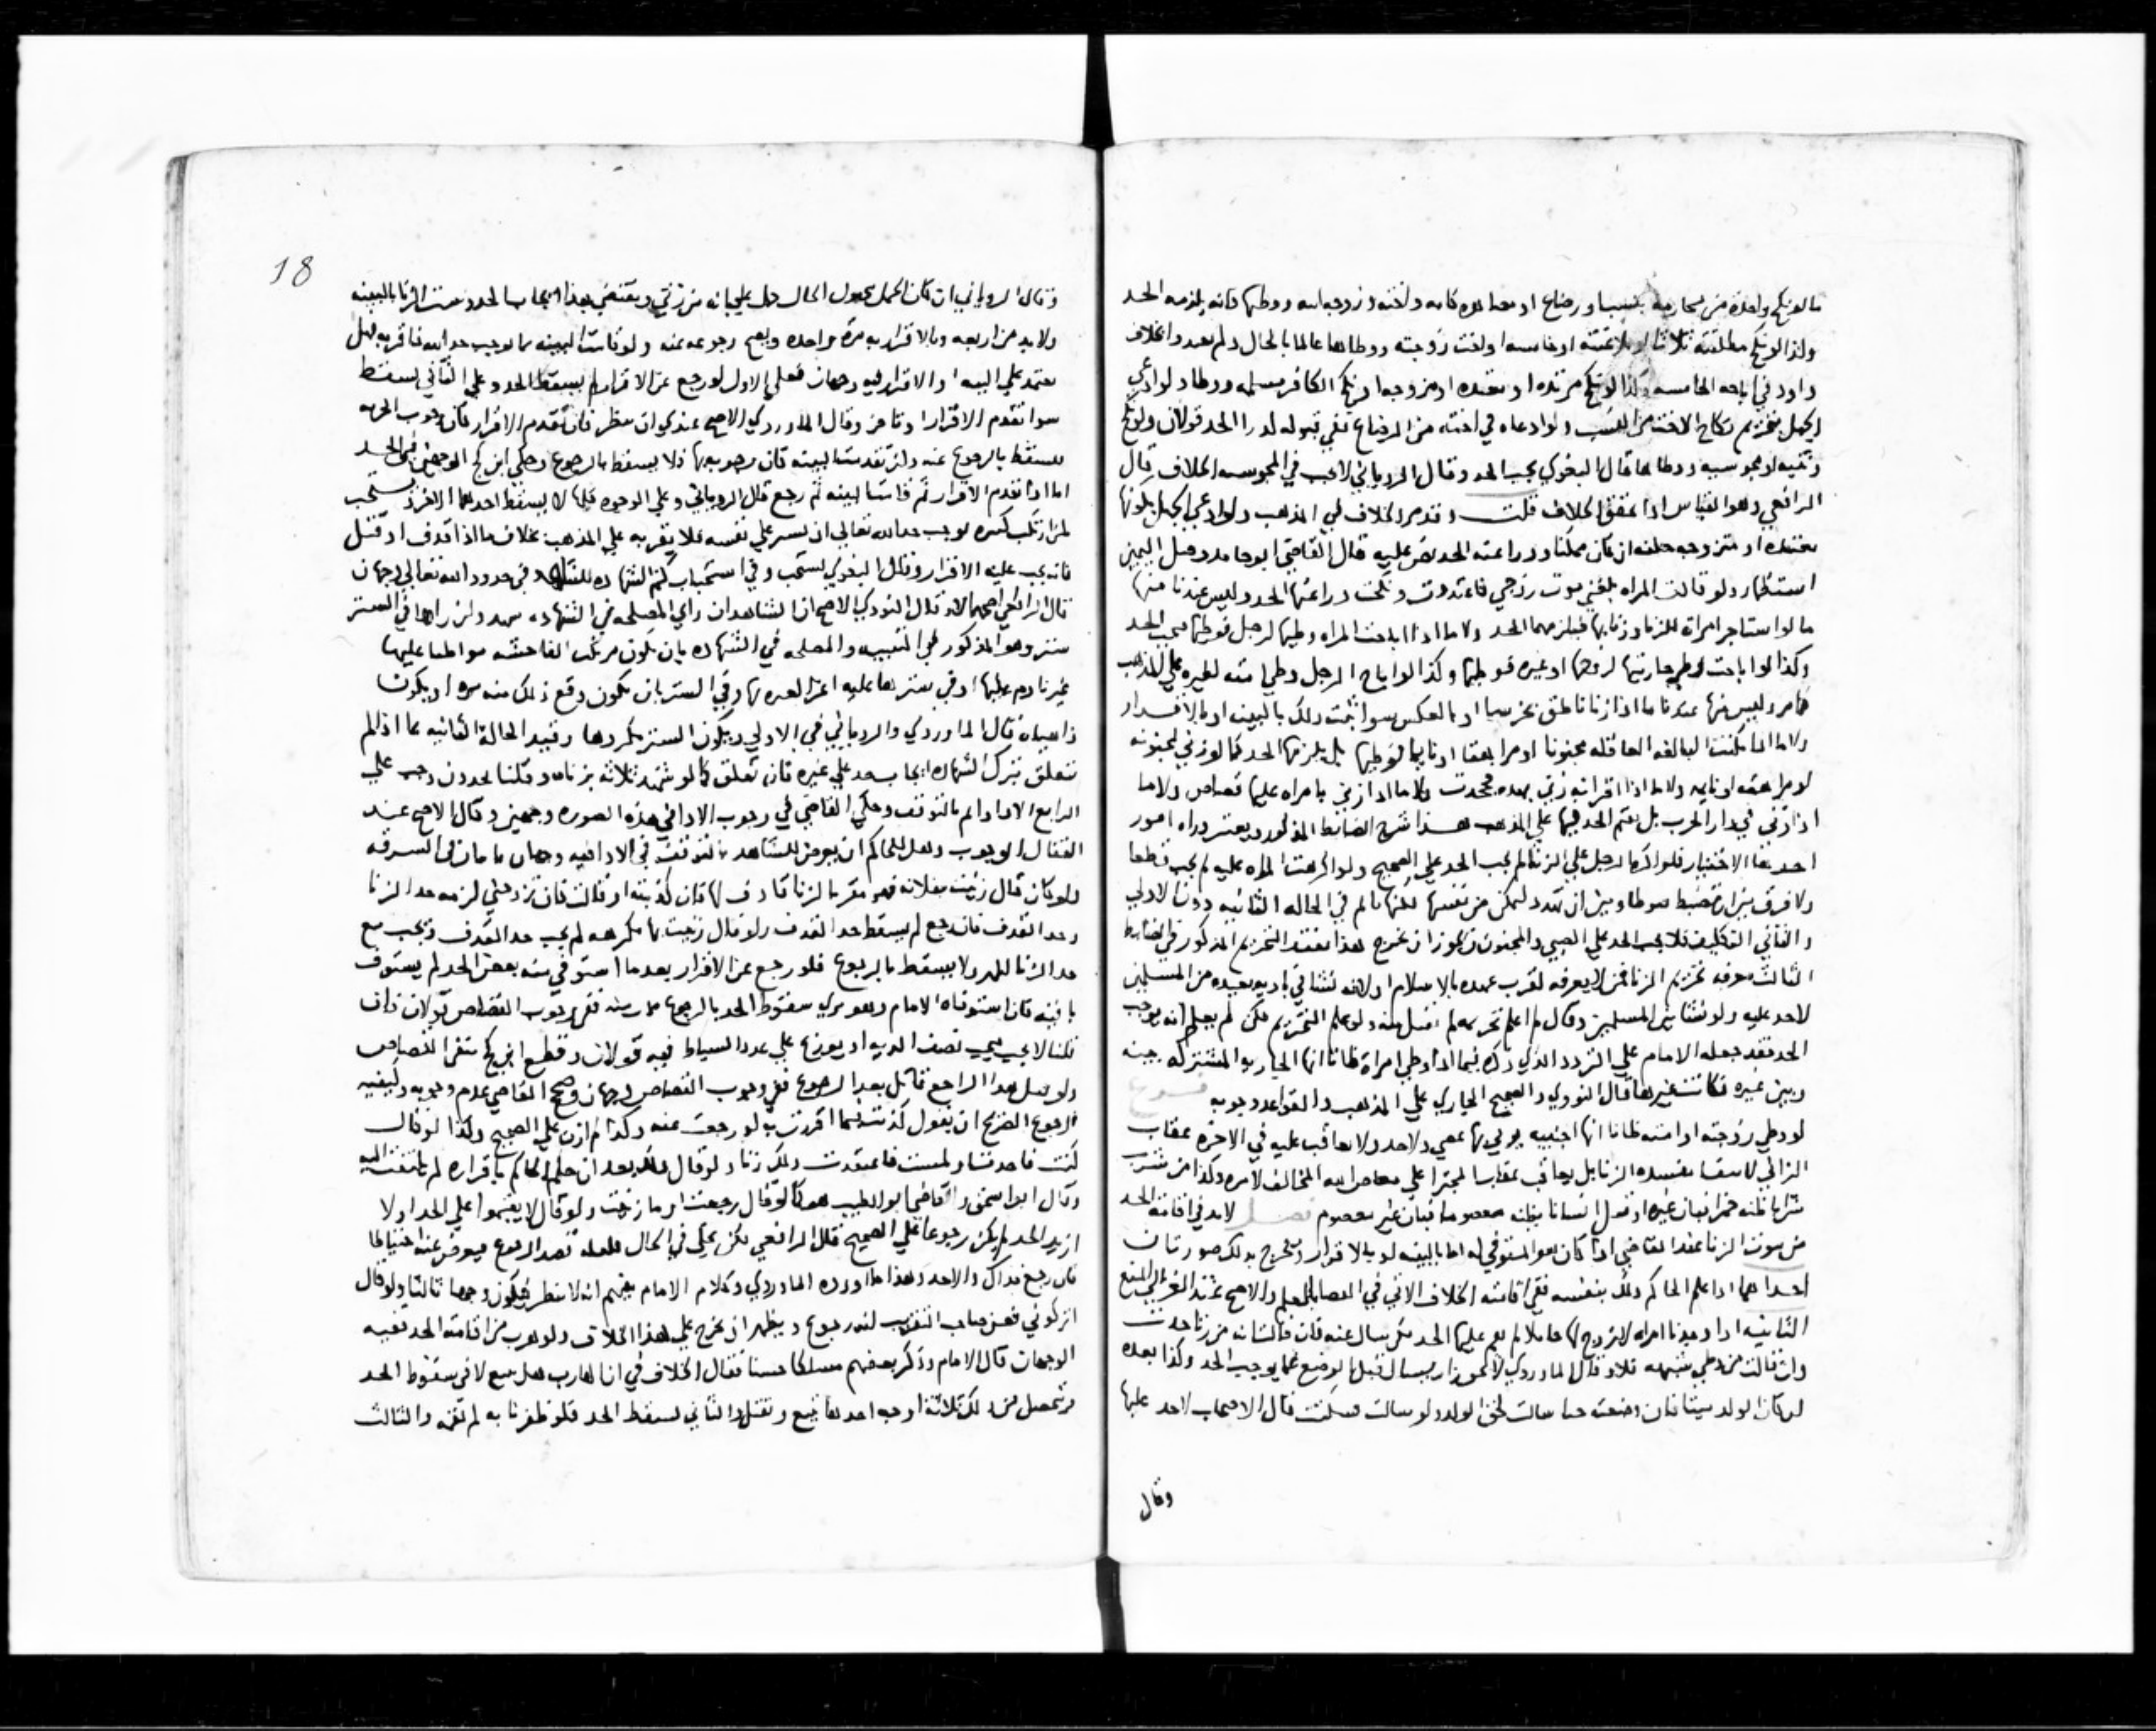 ما لو نكح واحدة من محارمه بنسب او رضاع او مصاهره كامه واخته وزوجه ابيه ووطيها فانه يلزمه الحد
وكذا لو نكح مطلقته ثلاثا او ملاعنته او خامسة او اخت زوجته ووطاها عالما بالحال ولم يعد واخلاف
داود في اباحه الخامسه وكذا لو نكح مرتده او معتده او مزوجه او نكح الكافر مسلمه ووطا ولو ادعي
الجهل بتحريم نكاح الاخت من النسب ولو ادعاه في اخته من الرضاع ففي قبوله لدرا الحد قولان ولو نكح
وثنيه او مجوسيه ووطاها قال البغوي يجب الحد وقال الروياني لا يجب في المجوسيه للخلاف قال
الرافعي وهو القياس اذا تحقق الخلاف قلت وقد مر الخلاف في المذهب ولو ادعي الجهل بكونها
معتده او متزوجه حلف ان كان ممكنا ودرا عنه الحد نص عليه قال القاضي ابو حامد وهل اليمين
استظهار ولو قالت المراه بلغني موت زوجي فاعتددت ونكحت درا عنها الحد وليس عندنا منها
ما لو استاجر امراه للزنا وزنا بها فيلزمهما الحد ولا ما اذا اباحت المراه وطيها لرجل فوطيها فيجب الحد
وكذا لو اباحت وطي جاريتها لزوجها او غيره فوطيها وكذا لو اباح الرجل وطي امته لغيره علي المذهب
كما مر وليس منها عندنا ما اذا زنا ناطق بخرسا او بالعكس سوا ثبت ذلك بالبينه او بالاقرار
ولا ما اذا مكنت البالغه العاقله مجنونا او مراهقا او نايما فوطيها بل يلزمها الحد كما لو زني بمجنونه
او مراهقه او نايمه ولا ما اذا اقر انه زني بهذه فجحدت ولا ما اذا زني بامراه عليها قصاص ولا ما
اذا زني في دار الحرب بل يقام الحد فيها علي المذهب هذا شرح الضابط المذكور ويعتبر وراه امور
احدها الاختيار فلو اكره الرجل علي الزنا لم يجب الحد علي الصحيح ولو اكرهت المراه عليه لم يجب قطعا
ولا فرق بين ان تضبط فتوطا وبين ان تهدد لتمكن من نفسها لكنها تاثم في الحاله الثانيه دون الاولي
والثاني التكليف فلا يجب الحد علي الصبي والمجنون ويجوز ان يخرج هذا بقيد التحريم المذكور في الضابط
الثالث معرفه تحريم الزنا فمن لا يعرفه لقرب عهده بالاسلام او لانه نشا في باديه بعيده من المسلمين
لاحد عليه ولو نشا بين المسلمين وقال لم اعلم تحريمه لم يقبل منه ولو علم التحريم لكن لم يعلم انه يوجب
الحد فقد جعله الامام علي التردد الذي ذكره فيما اذا وطي امراة ظانا انها الجاريه المشتركه بينه
وبين غيره فكانت غيرها قال النووي والصحيح الجاري علي المذهب والقواعد وجوبه فرع
لو وطي زوجته او امته ظانا انها اجنبيه يزني بها عصي ولاحد ولا يعاقب عليه في الاخره عقاب
الزاني لانتفا مفسده الزنا بل يعاقب عقابا لمجترا علي معاصي الله المخالف لامره وكذا من شرب
شرابا ظنه خمرا فبان غيره او قتل انسانا يظنه معصوما فبان غير معصوم فصل لابد في اقامة الحد
من ثبوت الزنا عند القاضي اذا كان هو المستوفي له اما بالبينه او بالاقرار ويخرج بذلك صورتان
احداهما اذا علم الحاكم ذلك بنفسه ففي اقامته الخلاف الاتي في القضا بالعلم والاصح عند الغزالي المنع
الثانيه اذا وجدنا امراه لازوج لها حاملا لم نقم عليها الحد بل يسال عنه فان قالت انه من زنا حدت
وان قالت من وطي شبهه فلا وقال الماوردي لا يجوز ان يسال قبل الوضع عما يوجب الحد وكذا بعده
لو كان الولد ميتا فان وضعته حيا سالت لحق الولد ولو سالت فسكتت قال الاصحاب لاحد عليها
وقال
18
وقال الروياني ان كان الحمل مجهول الحال حمل علي انه من زني ويقتضي هذا ايجاب الحد ويثبت الزنا بالبينه
ولابد من اربعه وبالاقرار به مرة واحده ويصح رجوعه عنه ولو قامت البينه بما يوجب حد الله فاقر به فهل
يعتمد علي البينه او الاقرار فيه وجهان فعلي الاول لو رجع عن الاقرار لم يسقط الحد وعلي الثاني يسقط
سوا تقدم الاقرار او تاخر وقال الماوردي الاصح عندي ان ينظر فان تقدم الاقرار كان وجوب الحد به
فيسقط بالرجوع عنه وان تقدمت البينه كان وجوبه بها فلا يسقط بالرجوع وحكي ابن كج الوجهين في الحد
اما اذا تقدم الاقرار ثم قامت البينه ثم رجع قال الروياني وعلي الوجوه كلها لا يسقط احدهما الاخر ويستحب
لمن ارتكب كبيره توجب حد الله تعالي ان يستر علي نفسه فلا يقر به علي المذهب بخلاف ما اذا قذف او قتل
فانه يجب عليه الاقرار وقال البغوي يستحب وفي استحباب كتم الشهاده للشاهد في حدود الله تعالي وجهان
قال الرافعي اصحهما لا وقال النووي الاصح ان الشاهد ان راي المصلحه في الشهاده شهد وان راها في الستر
ستر وهو المذكور في التنبيه والمصلحه في الشهاده بان يكون مرتكب الفاحشه مواظبا عليها
غير نادم عليها او في سترها عليه اغرا لغيره بها وفي الستر بان يكون وقع ذلك منه مره او يكون
ذا هيبات قال الماوردي والروياني ففي الاولي يكون الستر مكروها وقيد الحالة الثانيه بما اذا لم
يتعلق بترك الشهاده ايجاب حد علي غيره فان تعلق كما لو شهد ثلاثه بزناه وقلنا يحدون وجب علي
الرابع الادا واثم بالتوقف وحكي القاضي في وجوب الادا في هذه الصوره وجهين وقال الاصح عند
القفال الوجوب وهل للحاكم ان يعرض للشاهد بالتوقف في الادا فيه وجهان ياتيان في السرقه
ولو كان قال زنيت بفلانه فهو مقر بالزنا قاذف لها فان كذبته او قالت كان تزوجني لزمه حد الزنا
وحد القذف فان رجع لم يسقط حد القذف ولو قال زنيت بها مكرهه لم يجب حد القذف ويجب مع
حد الزنا المهر ولا يسقط بالرجوع فلو رجع عن الاقرار بعد ما استوفي منه بعض الحد لم يستوف
باقيه فان استوفاه الامام وهو يري سقوط الحد بالرجوع فمات منه ففي وجوب القصاص قولان فان
قلنا لا يجب فيجب نصف الديه او يوزع علي عدد السياط فيه قولان وقطع ابن كج بنفي القصاص
ولو قتل هذا الراجع قاتل بعد الرجوع ففي وجوب القصاص وجهان وصحح القاضي عدم وجوبه وكيفيه
الرجوع الصريح ان يقول كذبت فيما اقررت به او رجعت عنه وكذا لم ازن علي الصحيح وكذا لو قال
كنت فاخذت او لمست فاعتقدت ذلك زنا ولو قال ذلك بعد ان حكم الحاكم باقراره لم يلتفت اليه
وقال ابو اسحق والقاضي ابو الطيب هو كما لو قال رجعت او ما زنيت ولو قال لا يقيموا علي الحد او لا
اريد الحد لم يكن رجوعا علي الصحيح قال الرافعي لكن يخلي في الحال فلعله قصد الرجوع فيعرض عنه احتياطا
فان رجع فذاك والا حد وهذا ما اورده الماوردي وكلام الامام يفهم انه لا ينظر فيكون وجها ثالثا ولو قال
اتركوني فعن صاحب التقريب انه رجوع ويظهر ان يخرج علي هذا الخلاف ولو هرب من اقامة الحد ففيه
الوجهان قال الامام وذكر بعضهم مسلكا حسنا فقال الخلاف في ان الهارب هل يتبع لا في سقوط الحد
فتحصل من ذلك ثلاثة اوجه احدها يتبع ونقتله والثاني يسقط الحد فلو ظفرنا به لم نقمه والثالث